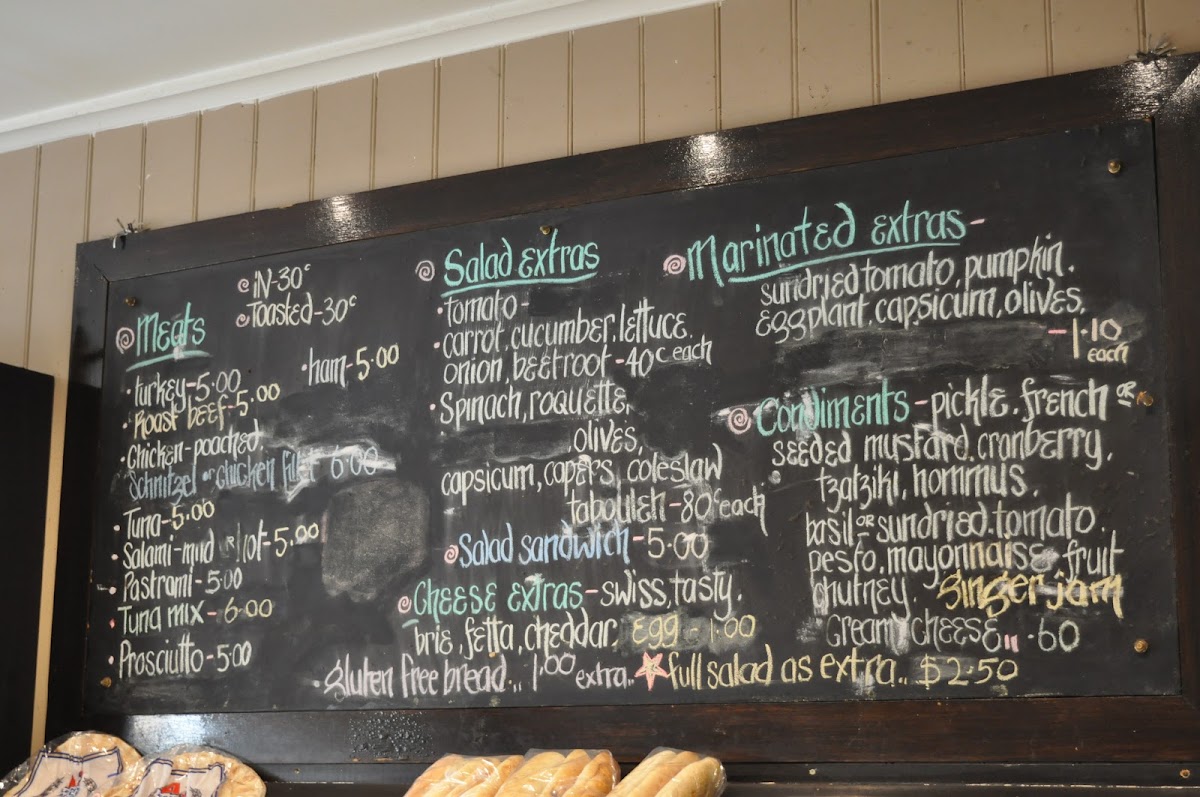 iN-30c
Toasted-30c
Meats
ham-5.00
turkey-5.00
Roast beef-5.00
Chicken-poached
Schnitzel or chicken fillet 6.00
Tuna-5.00
Salami-mild or Hot-5.00
Pastrami-5.00
Tuna mix-6.00
Prosciutto-5.00
Salad extras
tomato-
carrot, cucumber, lettuce.
onion, beetroot-40c each
Spinach, roquette,
olives,
capsicum, capers, coleslaw
tabouleh-80c each
Salad sandwich-5.00
Cheese extras-swiss, tasty.
brie, fetta, cheddar, Egg-1.00
gluten free bread.. 1.00 extra..
full salad as extra.. $2.50
Marinated extras-
sundried tomato, pumpkin.
Eggplant, capsicum, olives.
-1.10
each
Condiments-pickle, french or
seeded mustard, cranberry,
tzatziki, hommus.
basil or sundried tomato.
pesto, mayonnaise, fruit
chutney. ginger jam
Creamy cheese .60